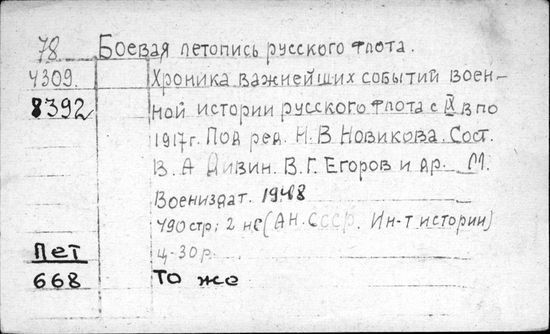 78 Боевая летопись русского флота.
4309. Хроника важнейших событий воен-
8392 ной истории русского флота с IX в по
1917г. Под ред. Н.В Новикова. Сост.
В.А Дивин. В.Г. Егоров и др. М.
Воениздат. 1948
490 стр; 2 нс (АН. СССР. Ин-т истории)
Лет ц-30р.
668 То же